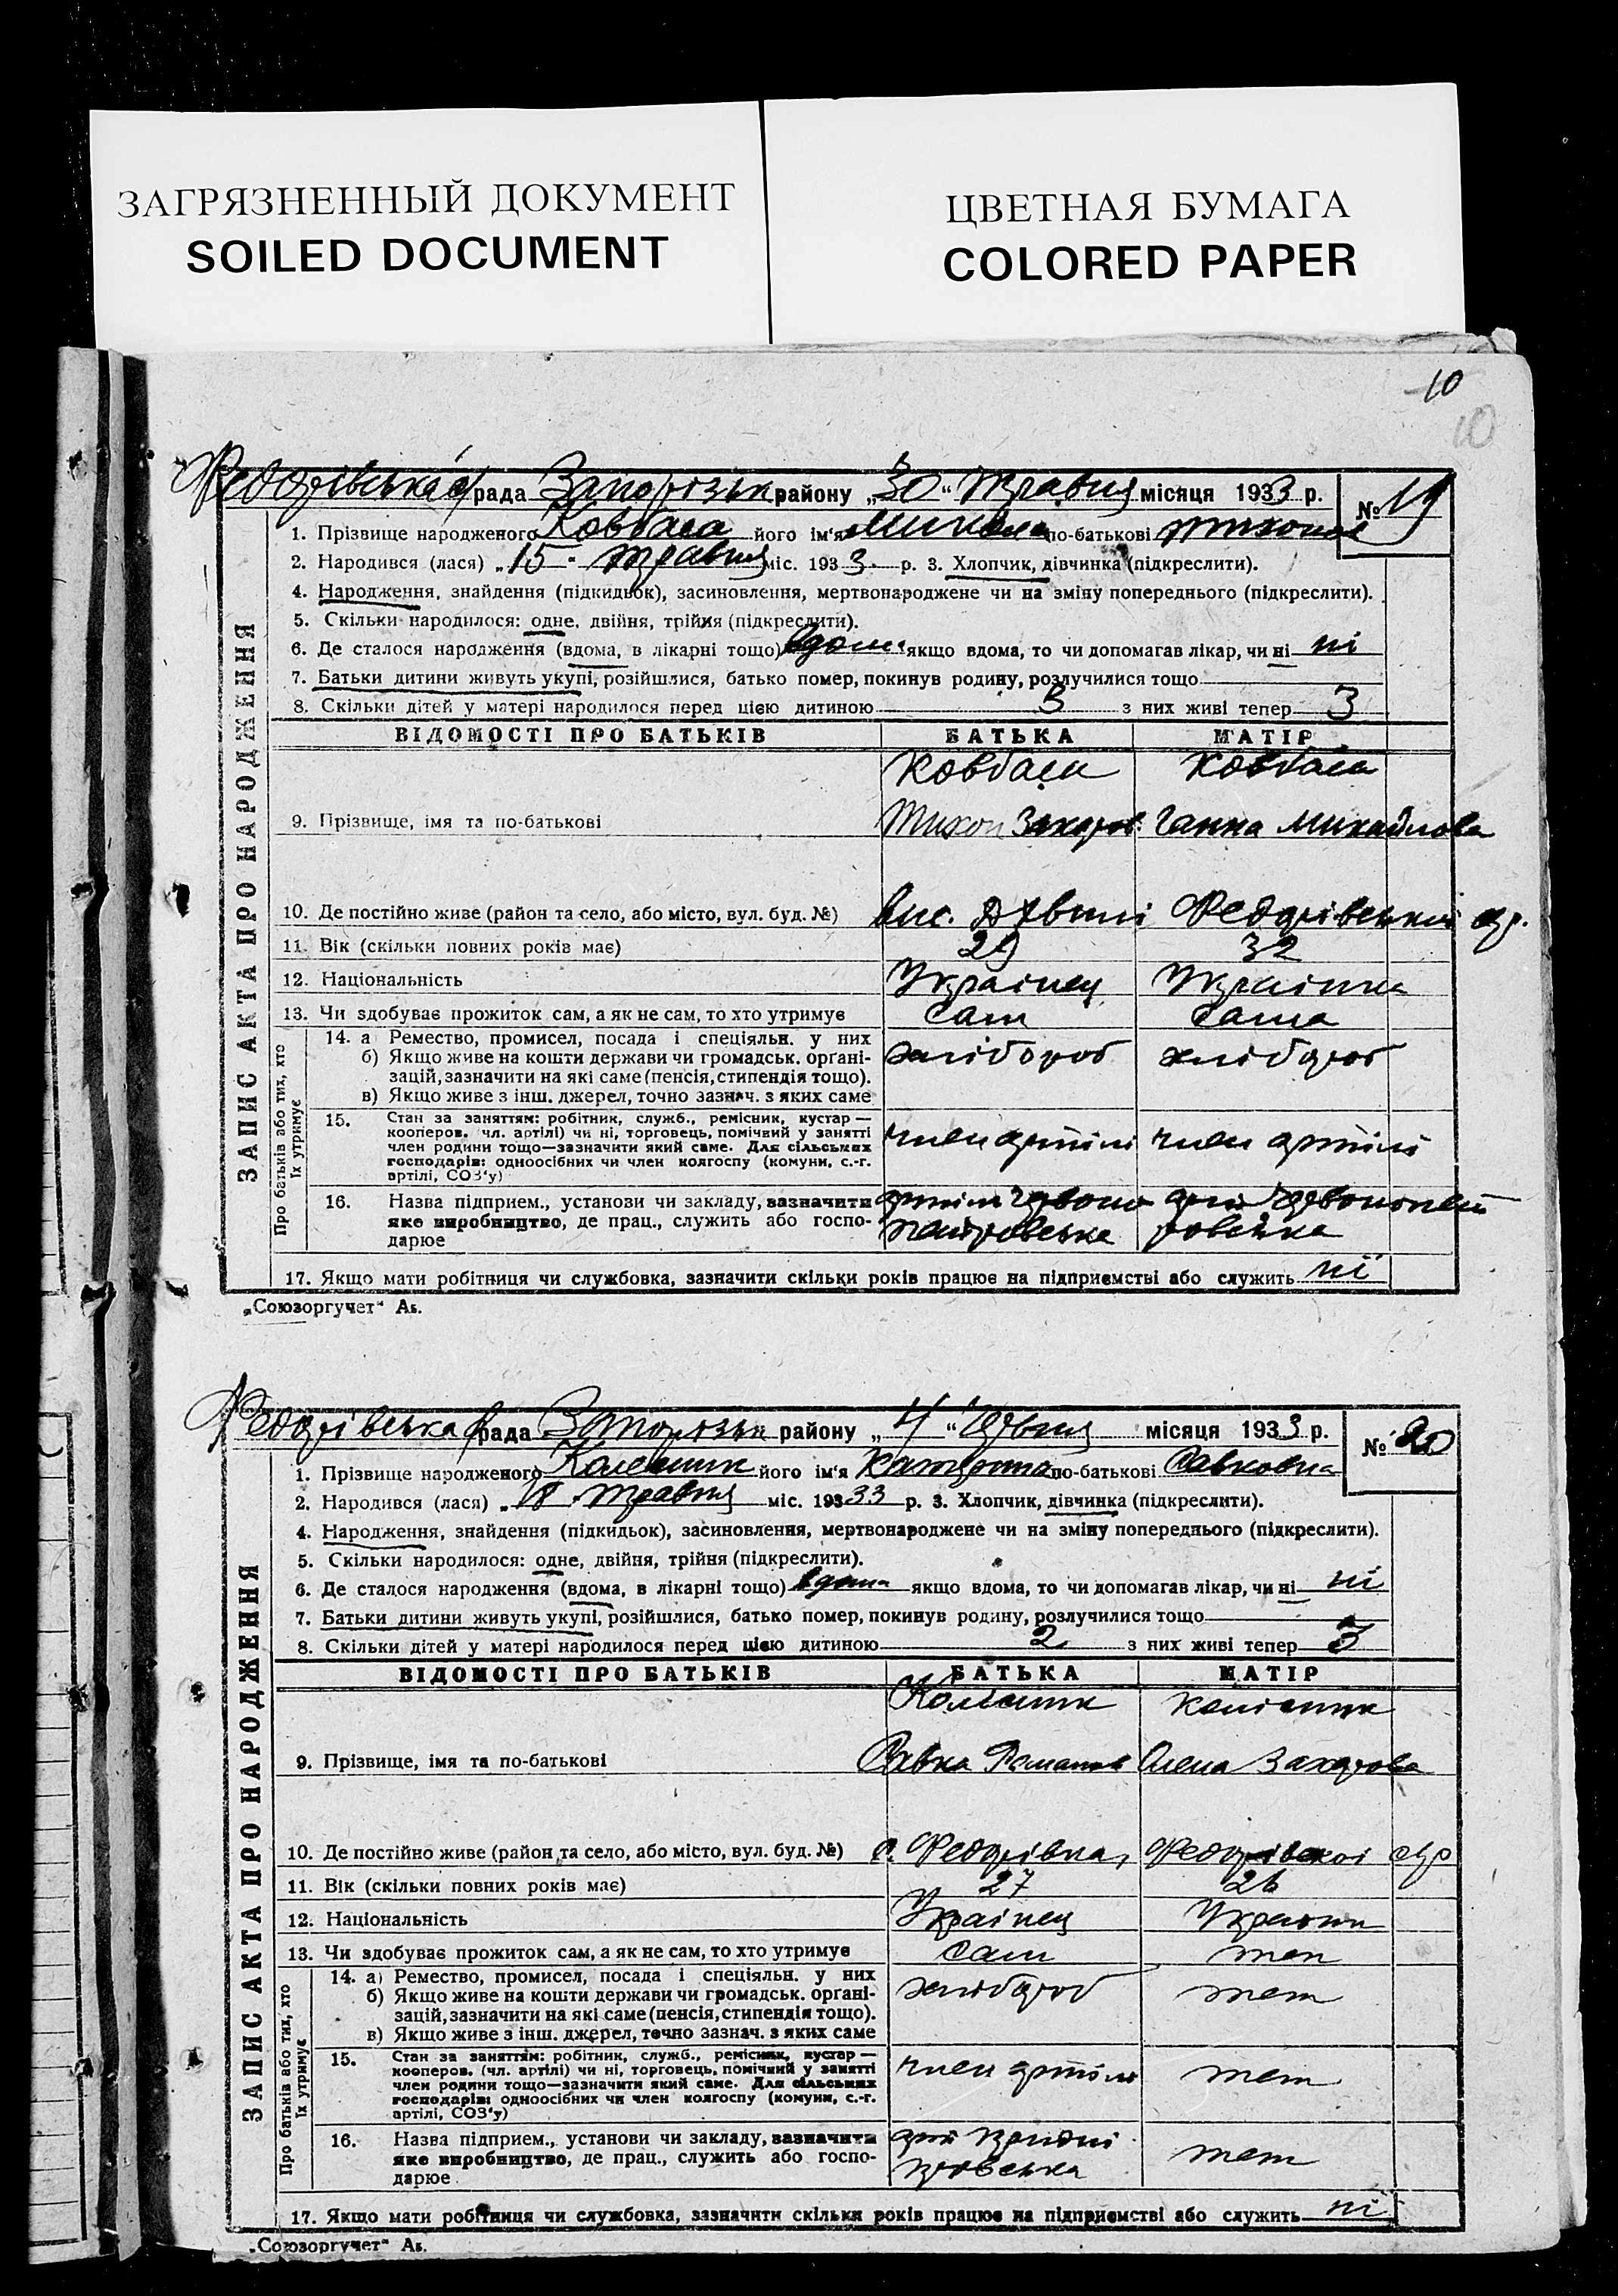 ЗАГРЯЗНЕННЫЙ ДОКУМЕНТ
SOILED DOCUMENT
ЦВЕТНАЯ БУМАГА
COLORED PAPER
10
10
Федорівська с/рада Запорізьк району „30“ Травня місяця 1933 р.
№ 19
ЗАПИС АКТА ПРО НАРОДЖЕННЯ
1. Прізвище народженого Ковбаса його ім'я Микола по-батькові Тихонов
2. Народився (лася) „15 " травня міс. 1933. р. 3. Хлопчик, дівчинка (підкреслити).
4. Народження, знайдення (підкидьок), засиновлення, мертвонароджене чи на зміну попереднього (підкреслити).
5. Скільки народилося: одне, двійня, трійня (підкреслити).
6. Де сталося народження (вдома, в лікарні тощо) вдома якщо вдома, то чи допомагав лікар, чи ні ні
7. Батьки дитини живуть укупі, розійшлися, батько помер, покинув родину, розлучилися тощо
8. Скільки дітей у матері народилося перед цією дитиною 3 з них живі тепер 3
ВІДОМОСТІ ПРО БАТЬКІВ БАТЬКА МАТІР
Ковбаса Ковбаса
9. Прізвище, імя та по-батькові Тихон Захаров. Ганна Михайлова
10. Де постійно живе (район та село, або місто, вул. буд. №) вис. Федорівської с/р.
11. Вік (скільки повних років має) 29 32
12. Національність Українец Українка
13. Чи здобуває прожиток сам, а як не сам, то хто утримує сам сама
Про батьків або тих, хто їх утримує
14. а) Ремество, промисел, посада і спеціяльн. у них хлібороб хлібороб
б) Якщо живе на кошти держави чи громадськ. органі-
зацій, зазначити на які саме (пенсія, стипендія тощо).
в) Якщо живе з інш. джерел, точно зазнач. з яких саме
15. Стан за заняттям: робітник, служб., ремісник, кустар —
кооперов. (чл. артілі) чи ні, торговець, помічний у занятті член артілі член артілі
член родини тощо—зазначити який саме. Для сільських
господарів: одноосібних чи член колгоспу (комуни, с.-г.
артілі, СОЗ'у)
16. Назва підприєм., установи чи закладу, зазначити артіль Червоно арт Червонопет
яке виробництво, де прац., служить або госпо- петровська ровська
дарює
17. Якщо мати робітниця чи службовка, зазначити скільки років працює на підприємстві або служить ні
„Союзоргучет“ Ав.
Федорівська с/рада Запорізьк району „4“ Червня місяця 1933 р.
№ 20
ЗАПИС АКТА ПРО НАРОДЖЕННЯ
1. Прізвище народженого Колесник його ім'я Катерина по-батькові Савковна
2. Народився (лася) „18 " травня міс. 19333 р. 3. Хлопчик, дівчинка (підкреслити).
4. Народження, знайдення (підкидьок), засиновлення, мертвонароджене чи на зміну попереднього (підкреслити).
5. Скільки народилося: одне, двійня, трійня (підкреслити).
6. Де сталося народження (вдома, в лікарні тощо) вдома якщо вдома, то чи допомагав лікар, чи ні ні
7. Батьки дитини живуть укупі, розійшлися, батько помер, покинув родину, розлучилися тощо
8. Скільки дітей у матері народилося перед цією дитиною 2 з них живі тепер 3
ВІДОМОСТІ ПРО БАТЬКІВ БАТЬКА МАТІР
Колісник Колісник
9. Прізвище, імя та по-батькові Савка Романов Олена Захарова
10. Де постійно живе (район та село, або місто, вул. буд. №) с. Федорівка, Федорівської с/р
11. Вік (скільки повних років має) 27 26
12. Національність Українец Українка
13. Чи здобуває прожиток сам, а як не сам, то хто утримує сам теж
Про батьків або тих, хто їх утримує
14. а) Ремество, промисел, посада і спеціяльн. у них хлібороб теж
б) Якщо живе на кошти держави чи громадськ. органі-
зацій, зазначити на які саме (пенсія, стипендія тощо).
в) Якщо живе з інш. джерел, точно зазнач. з яких саме
15. Стан за заняттям: робітник, служб., ремісник, кустар —
кооперов. (чл. артілі) чи ні, торговець, помічний у занятті член артілі теж
член родини тощо—зазначити який саме. Для сільських
господарів: одноосібних чи член колгоспу (комуни, с.-г.
артілі, СОЗ'у)
16. Назва підприєм., установи чи закладу, зазначити арт
яке виробництво, де прац., служить або госпо- теж
дарює
17. Якщо мати робітниця чи службовка, зазначити скільки років працює на підприємстві або служить ні
„Союзоргучет“ Ав.